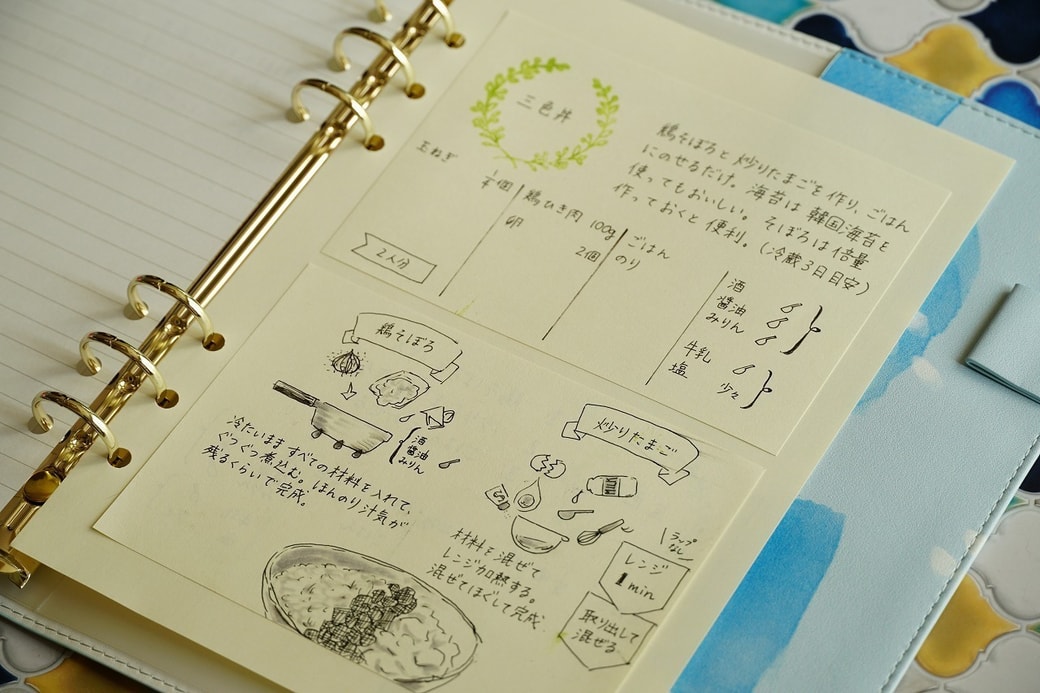 三色丼
鶏そぼろと炒りたまごを作り、ごはん
にのせるだけ。海苔は韓国海苔を
使ってもおいしい。そぼろは倍量
作っておくと便利。(冷蔵3日目安)
玉ねぎ
1/4個
鶏ひき肉 100g
卵 2個
ごはん
のり
酒
醤油
みりん
牛乳
塩 少々
2人分
鶏そぼろ
酒
醤油
みりん
冷たいまますべての材料を入れて、
ぐつぐつ煮込む。ほんのり汁気が
残るくらいで完成。
炒りたまご
材料を混ぜて
レンジ加熱する。
混ぜてほぐして完成.
ラップ
なし
レンジ
1min
取り出して
混ぜる